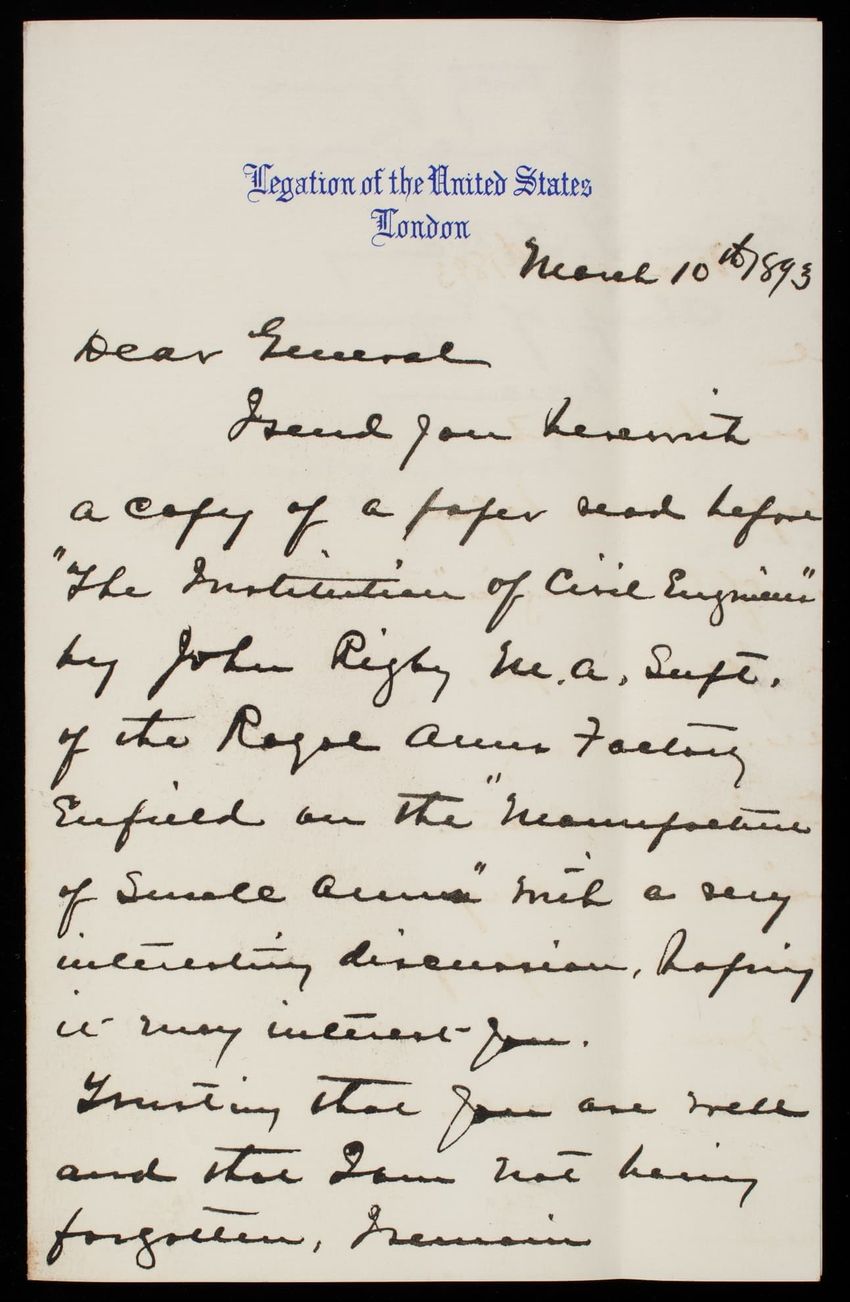 Legation of the United States
London
March 10th 1893
Dear General
I send you herewith
a copy of a paper read before
"The Institution of Civil Engineers"
by John Rigby M.A., Supt.
of the Royal Arms Factory
Enfield on the "Manufacture
of Small Arms" with a very
interesting discussion, hoping
it may interest you.
Trusting that you are well
and that I am not being
forgotten, I remain